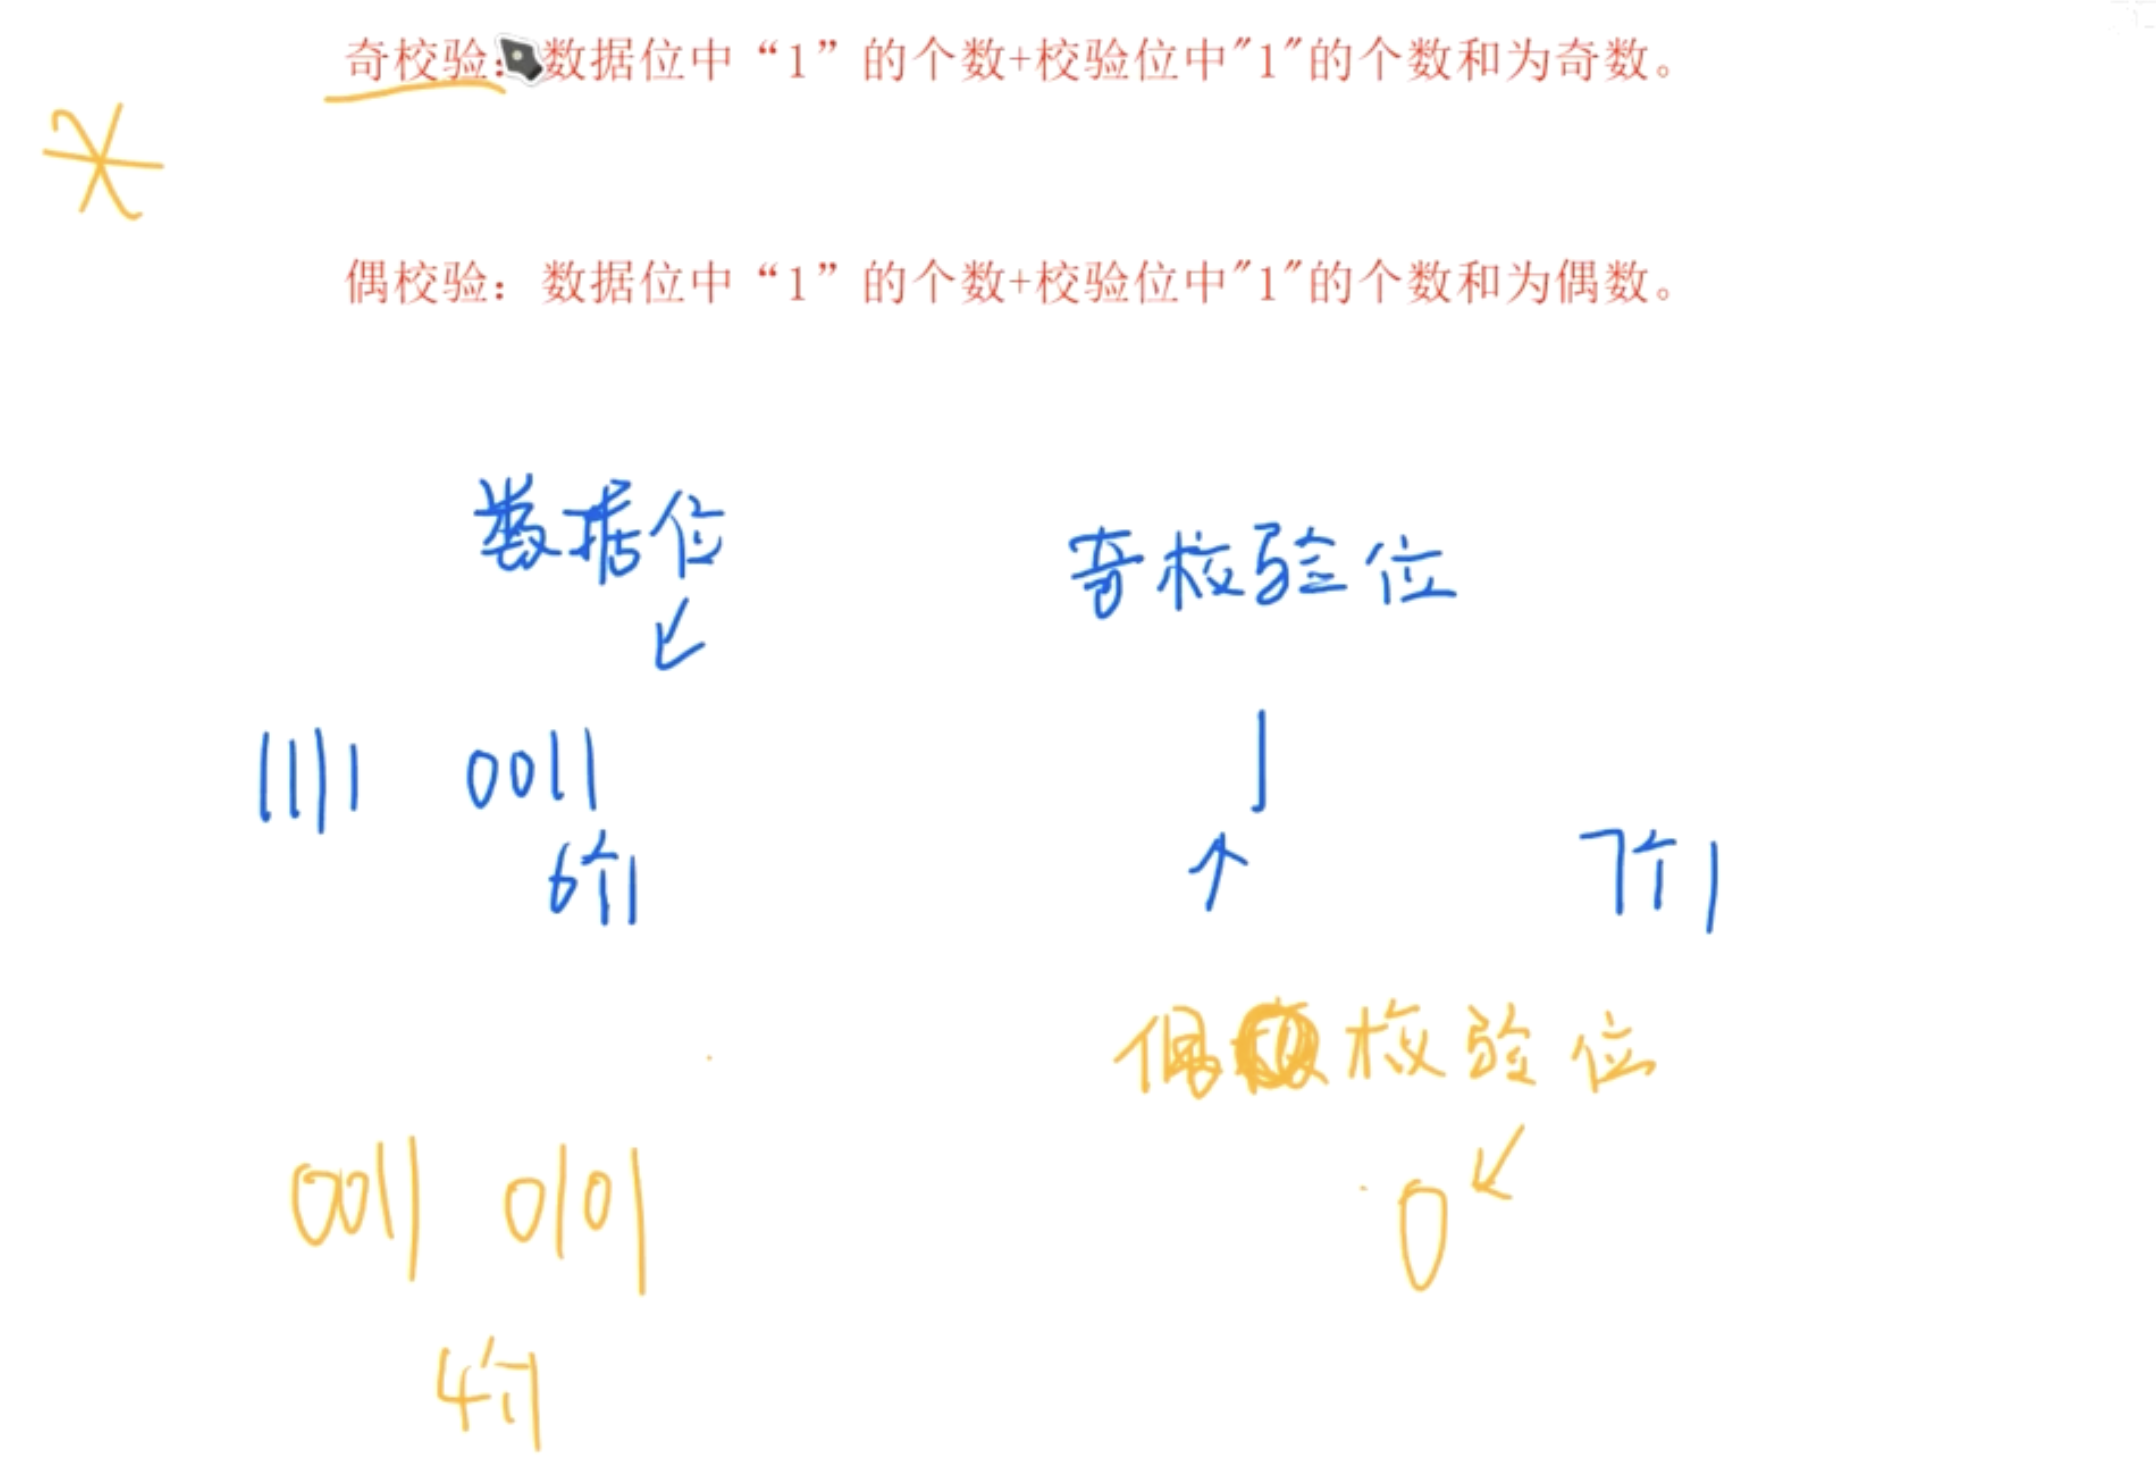 奇校验：数据位中“1”的个数+校验位中"1"的个数和为奇数。
偶校验：数据位中“1”的个数+校验位中"1"的个数和为偶数。
数据位
奇校验位
1111 0011
1
6个1
7个1
偶校验位
0011 0101
0
4个1